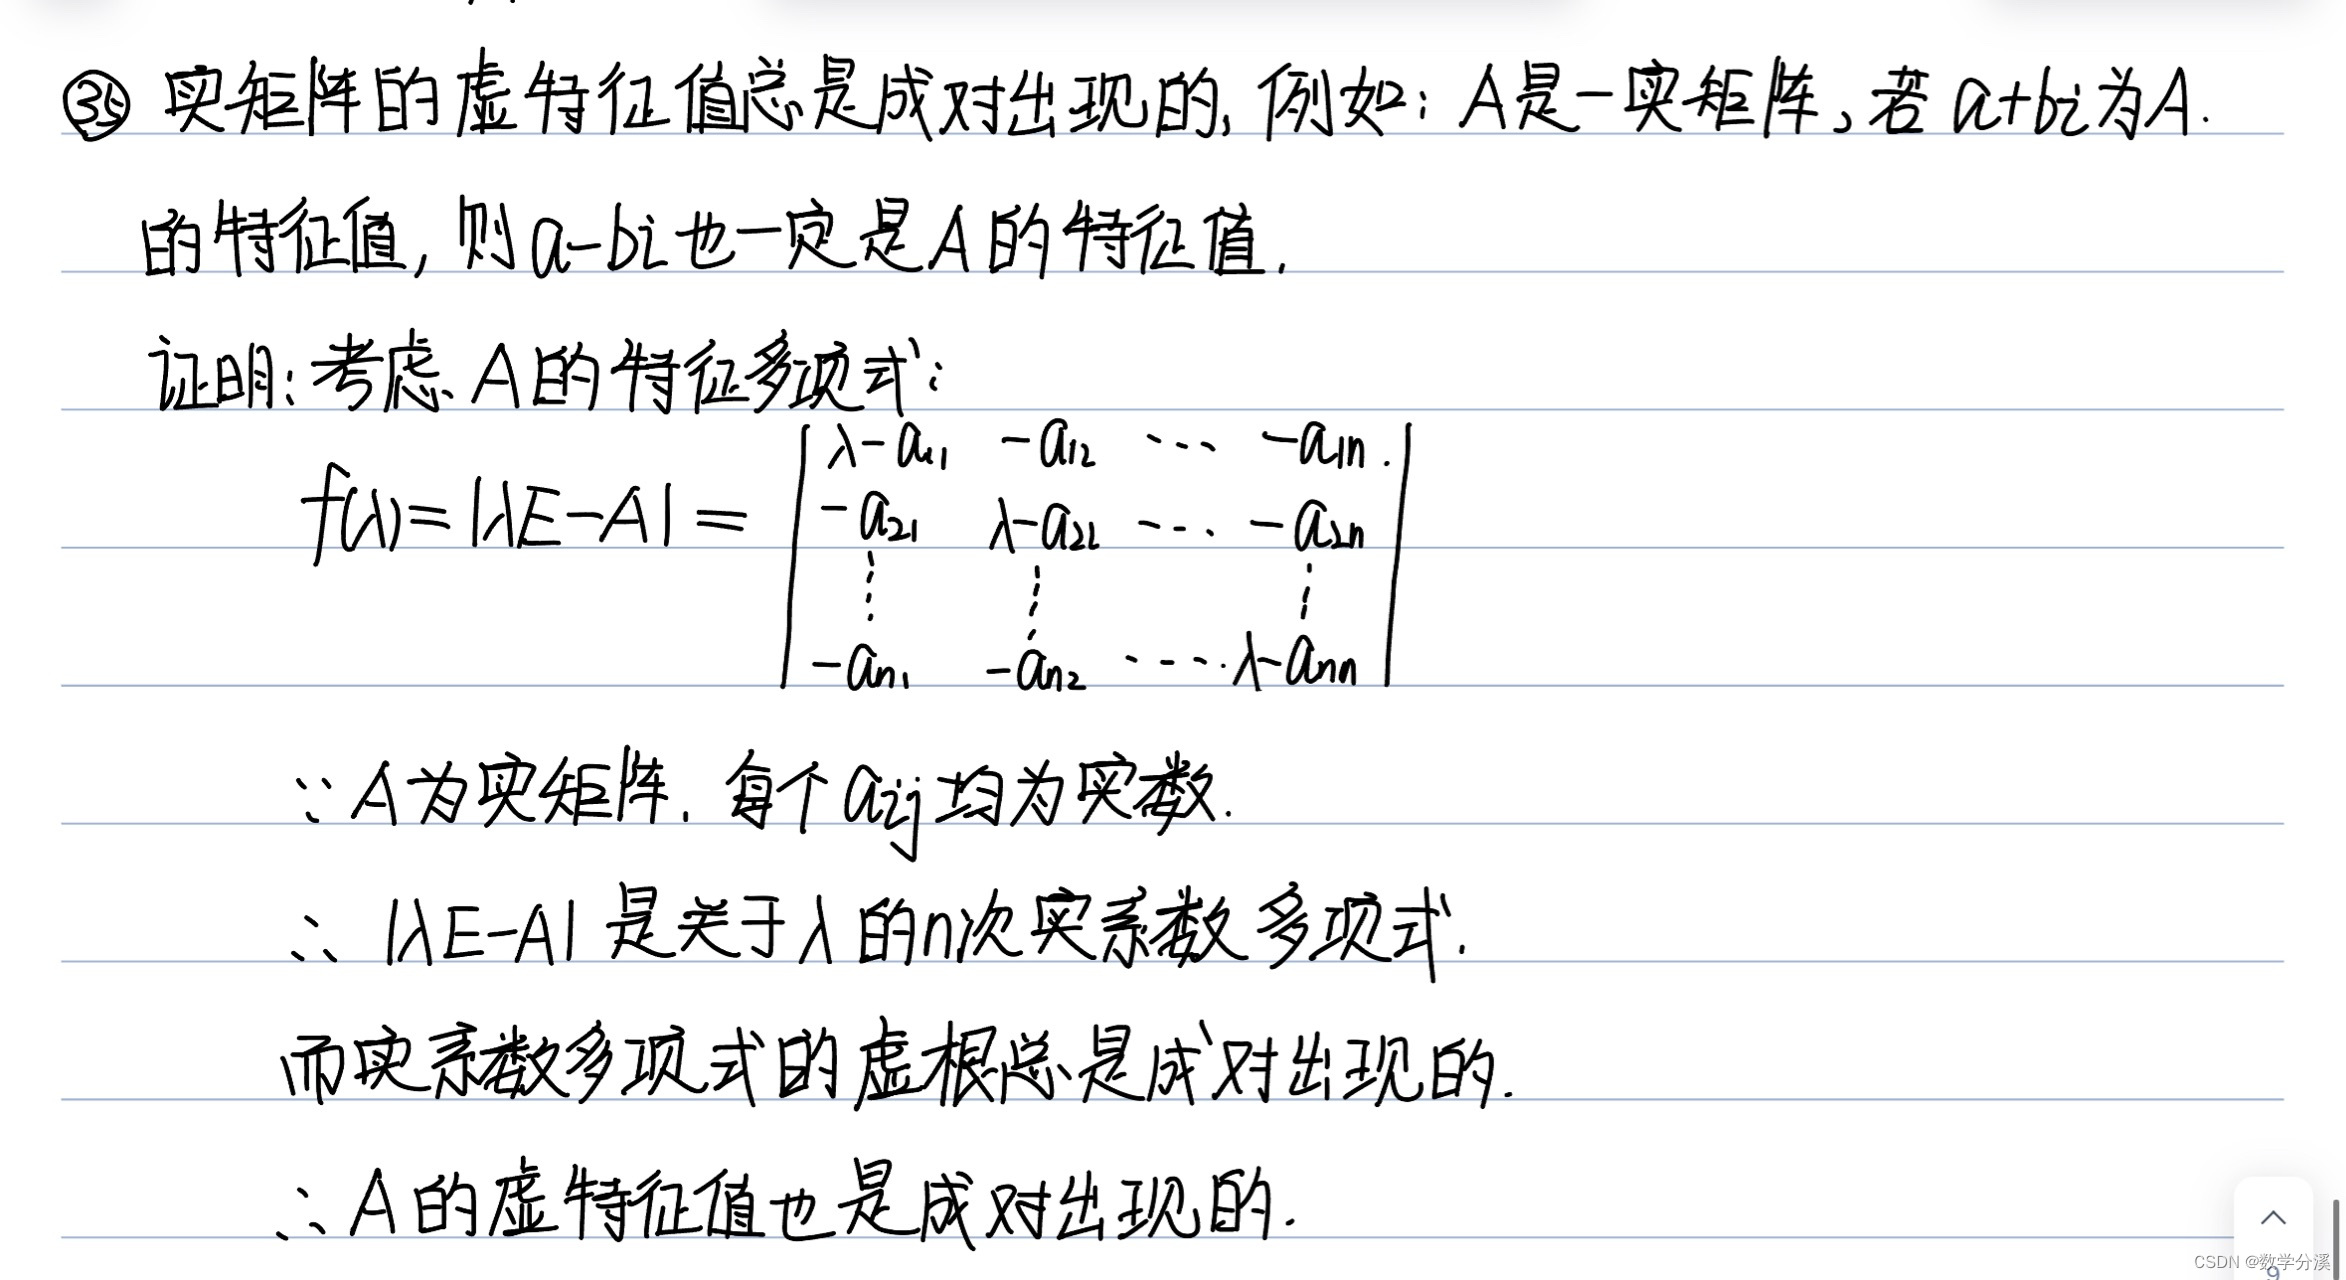 ㉟ 实矩阵的虚特征值总是成对出现的, 例如: A是一实矩阵, 若 a+bi为A.
的特征值, 则a-bi也一定是A的特征值.
证明: 考虑A的特征多项式:
λ-a₁₁ -a₁₂ ··· -a₁ₙ.
f(λ)=|λE-A|= -a₂₁ λ-a₂₂ ···· -a₂ₙ
⋮ ⋮ ⋮
-aₙ₁ -aₙ₂ ···· λ-aₙₙ
∵ A为实矩阵. 每个aij均为实数.
∴ |λE-A| 是关于λ的n次实系数多项式.
而实系数多项式的虚根总是成对出现的.
∴ A的虚特征值也是成对出现的.
CSDN @数学分溪
9